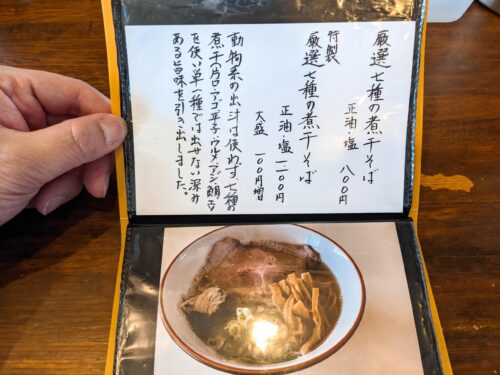 厳選七種の煮干そば
正油・塩 八〇〇円
特製
厳選七種の煮干そば
正油・塩 一一〇〇円
大盛 一〇〇円増
動物系の出汁は使わず七種の
煮干(片口・アゴ・平子・ウルメ・アジ・鯛・
を使い単一種では出せない深み
ある旨味を引き出しました。